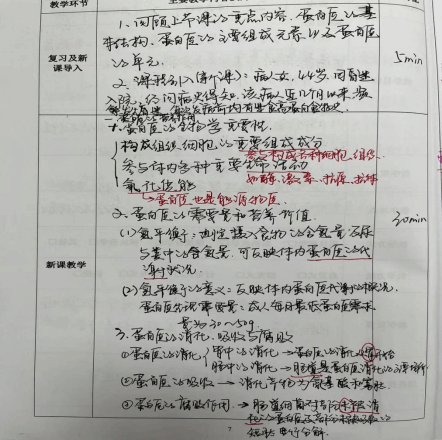 教学环节
复习及新
课导入
1、回顾上节课的重点内容、蛋白质的基
本结构、蛋白质的主要组成元素以及蛋白质
的单元。
2、课程引入(个课):病人女,44岁,因
入院,经问病史得知,该病人近几个月以来
5min
一、蛋白质的生物学重要性
构成组织、细胞的主要组成成分
参与构成各种细胞、组织
参与体内多种重要生命活动
如酶、激素、抗体
氧化供能
→蛋白质也是能源物质
2、蛋白质的需要量和营养价值
30min
新课教学
(1)氮平衡:测定摄入食物的含氮量及尿
与粪中的含氮量,可反映体内蛋白质的代
谢状况
(2)氮平衡的意义:反映体内蛋白质代谢状况。
蛋白质生理需要量:成人每日最低蛋白质需求
量为30~50g
3、蛋白质的消化、吸收与腐败
①蛋白质的消化
胃中的消化→蛋白质的消化由胃开始
肠中的消化→肠道是蛋白质消化的主要场所
②蛋白质的吸收→消化产物为氨基酸和寡肽
③蛋白质的腐败作用→肠道细菌对部分未被消
化的蛋白质及部分
进行分解